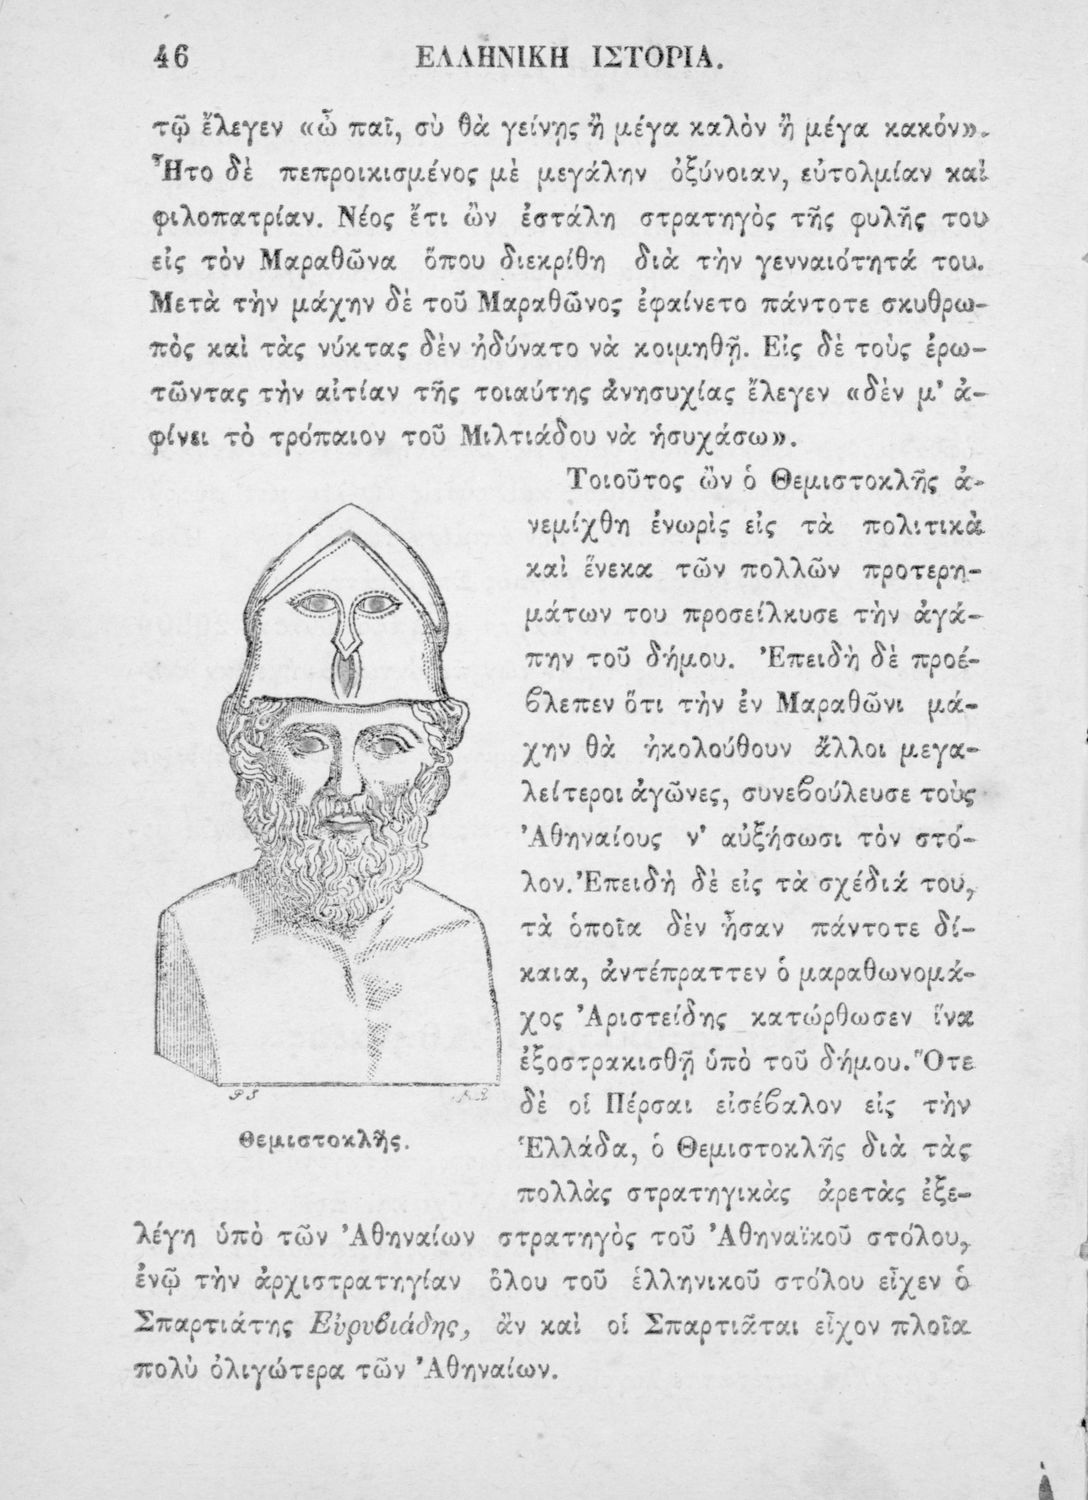 46 ΕΛΛΗΝΙΚΗ ΙΣΤΟΡΙΑ.
τῷ ἔλεγεν «ὦ παῖ, σὺ θὰ γείνῃς ἢ μέγα καλὸν ἢ μέγα κακόν».
Ἦτο δὲ πεπροικισμένος μὲ μεγάλην ὀξύνοιαν, εὐτολμίαν καὶ
φιλοπατρίαν. Νέος ἔτι ὢν ἐστάλη στρατηγὸς τῆς φυλῆς του
εἰς τὸν Μαραθῶνα ὅπου διεκρίθη διὰ τὴν γενναιότητά του.
Μετὰ τὴν μάχην δὲ τοῦ Μαραθῶνος ἐφαίνετο πάντοτε σκυθρω-
πὸς καὶ τὰς νύκτας δὲν ἠδύνατο νὰ κοιμηθῇ. Εἰς δὲ τοὺς ἐρω-
τῶντας τὴν αἰτίαν τῆς τοιαύτης ἀνησυχίας ἔλεγεν «δὲν μ' ἀ-
φίνει τὸ τρόπαιον τοῦ Μιλτιάδου νὰ ἡσυχάσω».
Τοιοῦτος ὢν ὁ Θεμιστοκλῆς ἀ-
νεμίχθη ἐνωρὶς εἰς τὰ πολιτικὰ
καὶ ἕνεκα τῶν πολλῶν προτερη-
μάτων του προσείλκυσε τὴν ἀγά-
πην τοῦ δήμου. Ἐπειδὴ δὲ προέ-
βλεπεν ὅτι τὴν ἐν Μαραθῶνι μά-
χην θὰ ἠκολούθουν ἄλλοι μεγα-
λείτεροι ἀγῶνες, συνεβούλευσε τοὺς
Ἀθηναίους ν' αὐξήσωσι τὸν στό-
λον. Ἐπειδὴ δὲ εἰς τὰ σχέδιά του,
τὰ ὁποῖα δὲν ἦσαν πάντοτε δί-
καια, ἀντέπραττεν ὁ μαραθωνομά-
χος Ἀριστείδης κατώρθωσεν ἵνα
ἐξοστρακισθῇ ὑπὸ τοῦ δήμου. Ὅτε
δὲ οἱ Πέρσαι εἰσέβαλον εἰς τὴν
Ἑλλάδα, ὁ Θεμιστοκλῆς διὰ τὰς
πολλὰς στρατηγικὰς ἀρετὰς ἐξε-
Θεμιστοκλῆς.
λέγη ὑπὸ τῶν Ἀθηναίων στρατηγὸς τοῦ Ἀθηναϊκοῦ στόλου,
ἐνῷ τὴν ἀρχιστρατηγίαν ὅλου τοῦ ἑλληνικοῦ στόλου εἶχεν ὁ
Σπαρτιάτης Εὐρυβιάδης, ἂν καὶ οἱ Σπαρτιᾶται εἶχον πλοῖα
πολὺ ὀλιγώτερα τῶν Ἀθηναίων.